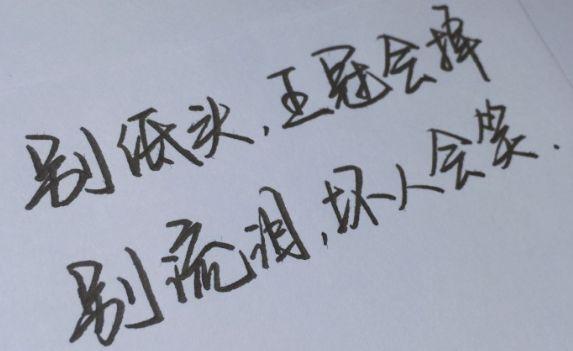 别低头,王冠会掉
别流泪,坏人会笑.